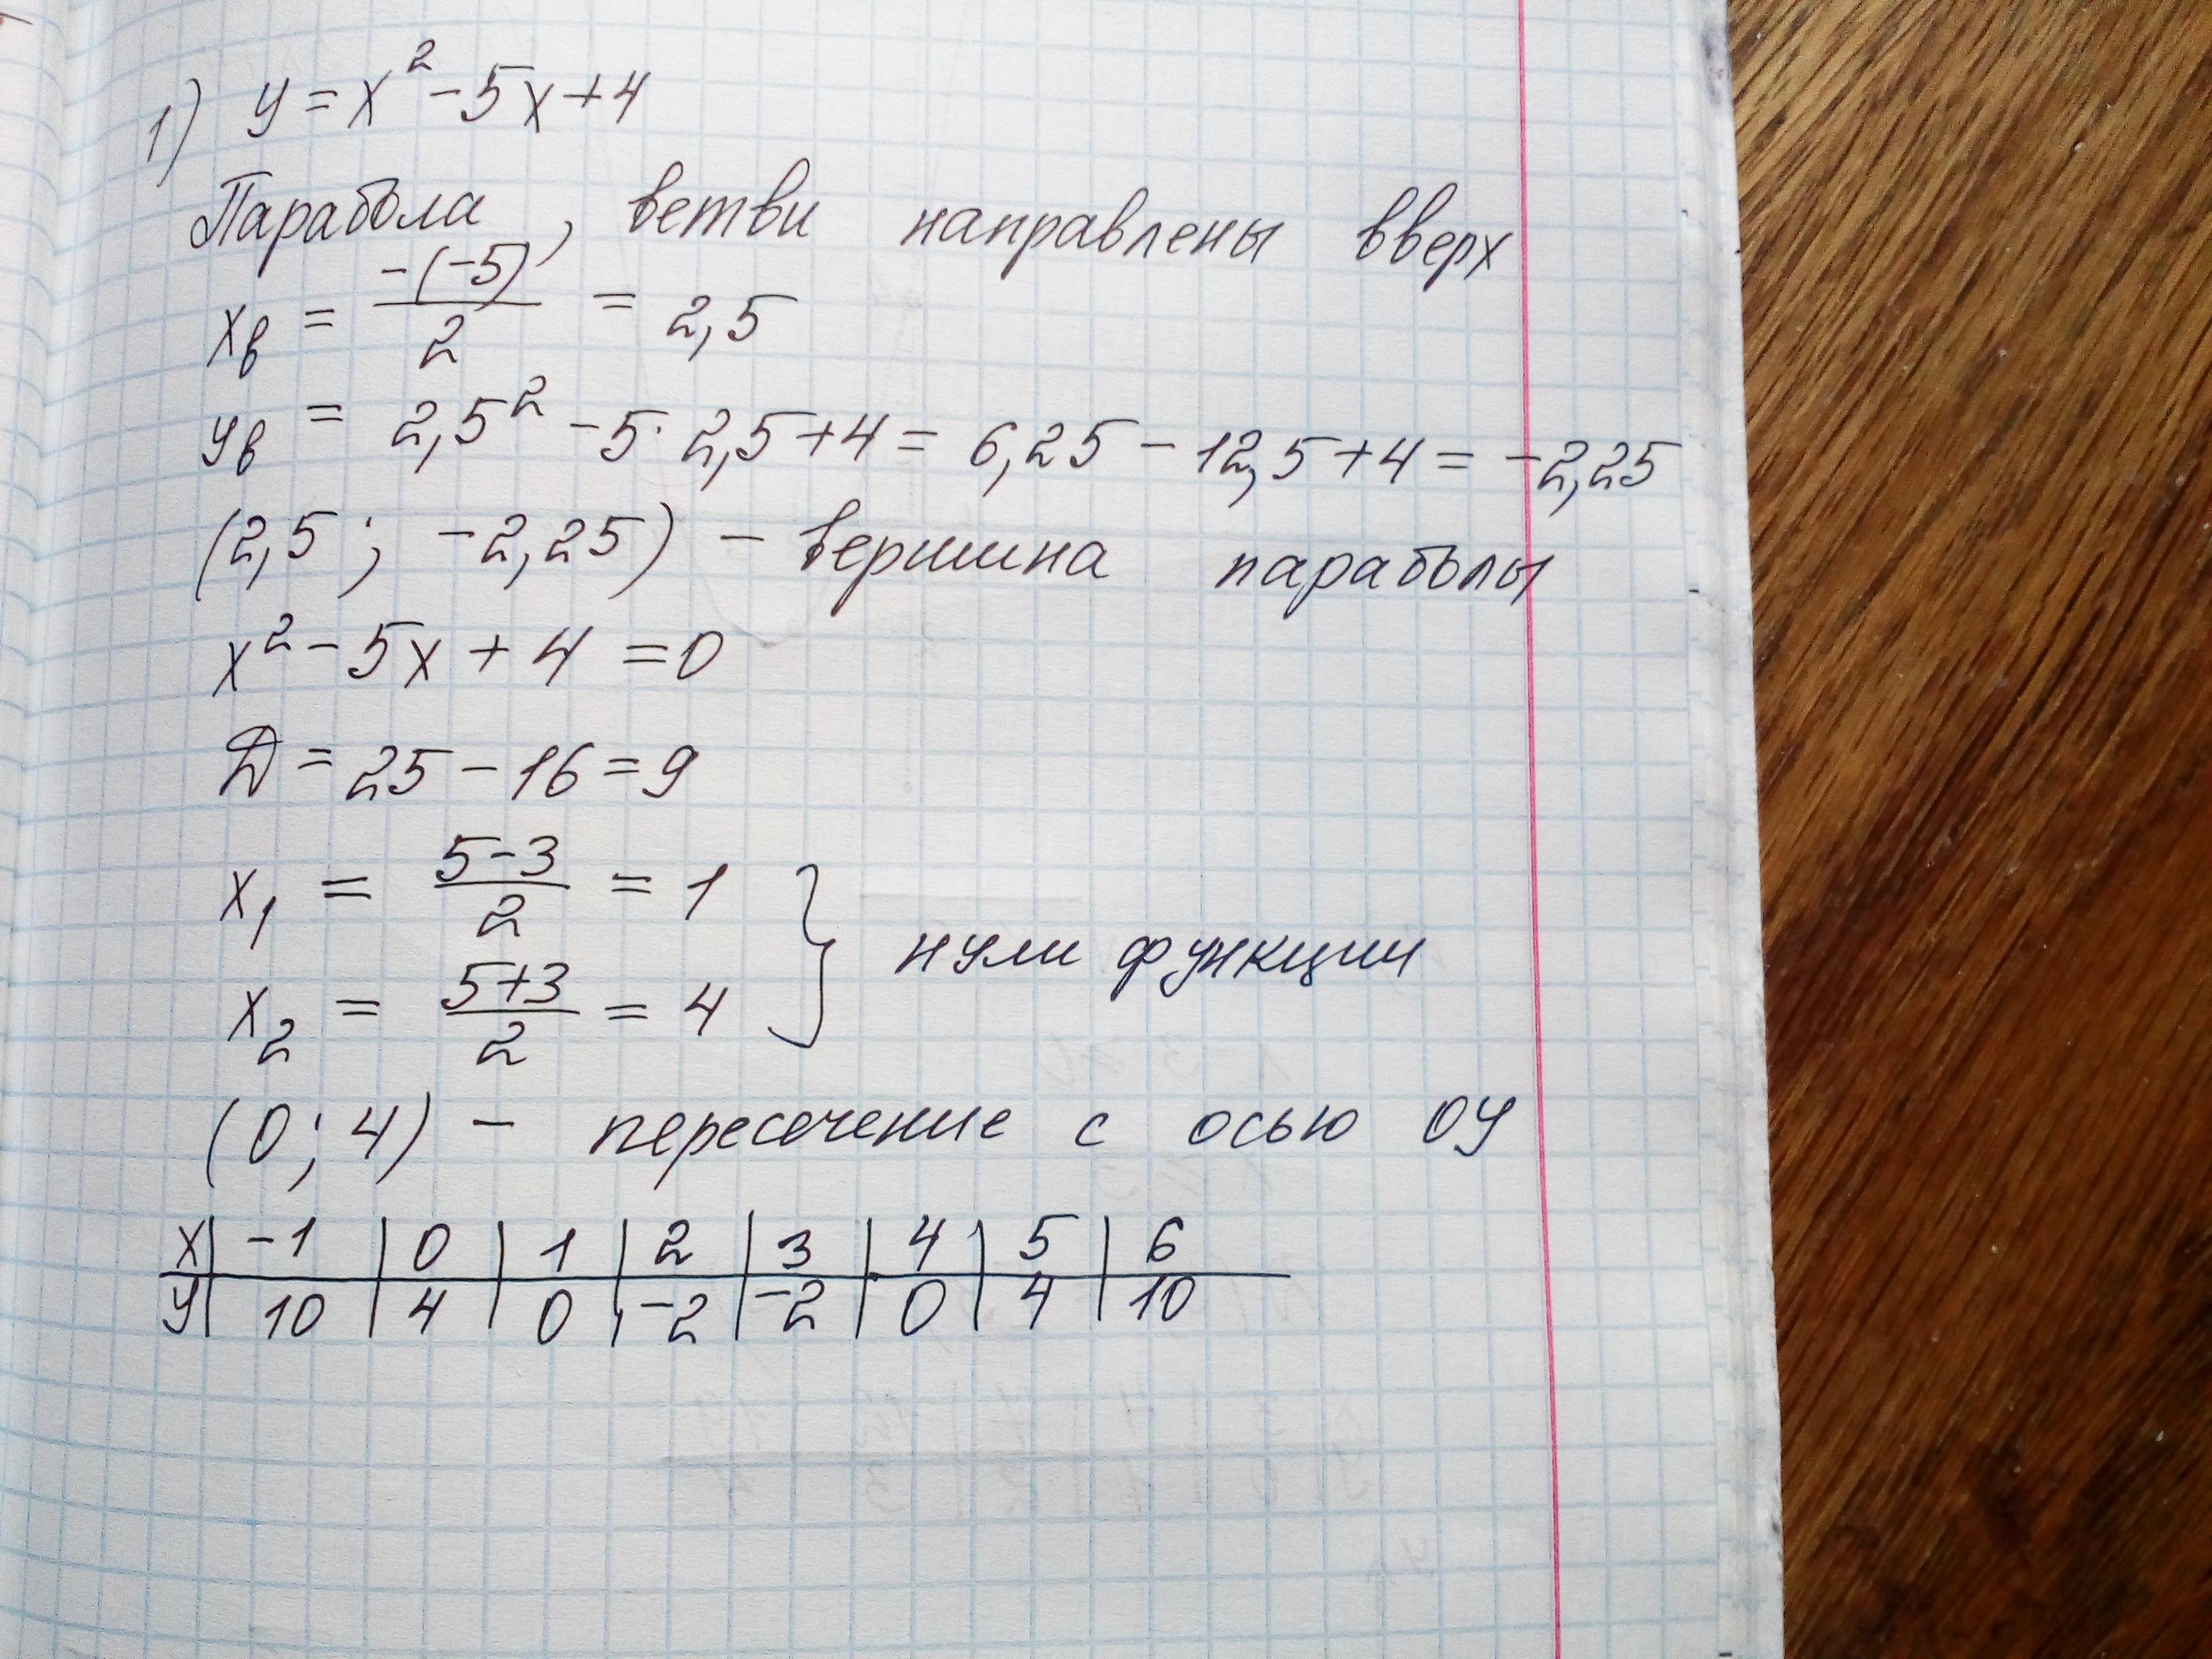 1) y = x² - 5x + 4
Парабола, ветви направлены вверх
xв = -(-5)/2 = 2,5
yв = 2,5² - 5 · 2,5 + 4 = 6,25 - 12,5 + 4 = -2,25
(2,5 ; -2,25) - вершина параболы
x² - 5x + 4 = 0
D = 25 - 16 = 9
x₁ = (5-3)/2 = 1
x₂ = (5+3)/2 = 4 } нули функции
(0; 4) - пересечение с осью OY
x | -1 | 0 | 1 | 2 | 3 | 4 | 5 | 6
y | 10 | 4 | 0 | -2 | -2 | 0 | 4 | 10